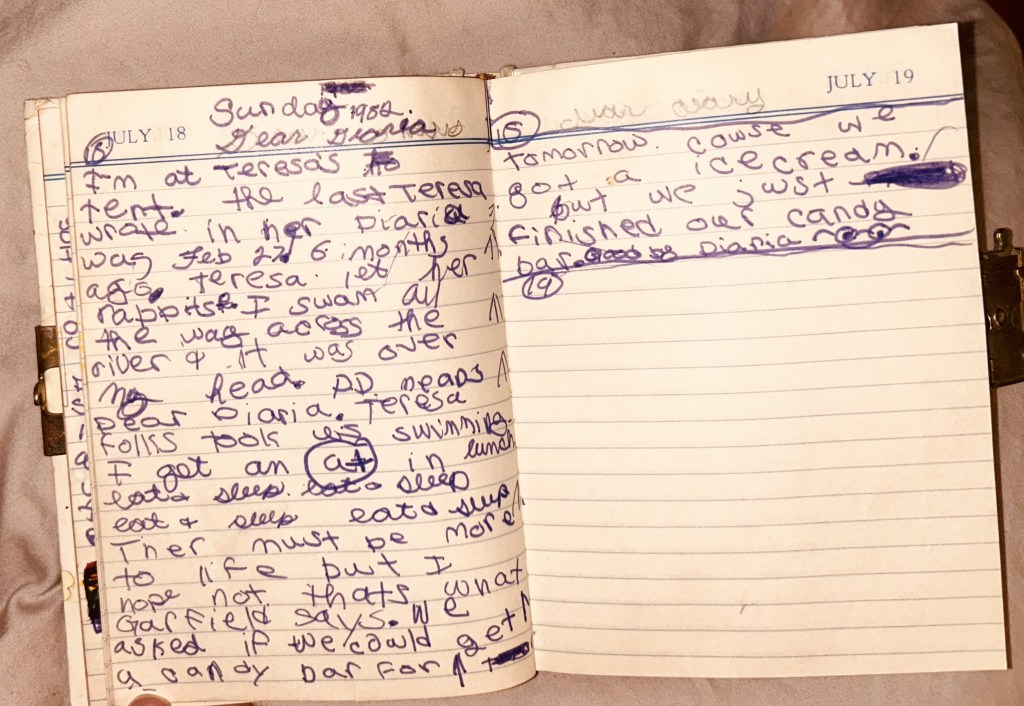 Sunday 1982.
JULY 18
Dear Diaria
I'm at Teresa's
tent. the last Teresa
wrote in her Diaria
was Feb 27, 6 months
ago. Teresa let her
rabbits. I swam all
the way across the
river & it was over
my head. DD means
Dear Diaria. Teresa
Folks took us swimming.
I get an a+ in lunch
eat & sleep. eat & sleep
eat & sleep eat & sleep
Ther must be more
to life but I
hope not thats what
Garfield says. We
asked if we could get
a candy bar for
JULY 19
dear diary
tomorrow. cowse we
got a ice cream.
but we just
finished our candy
bar. Good by Diaria
19